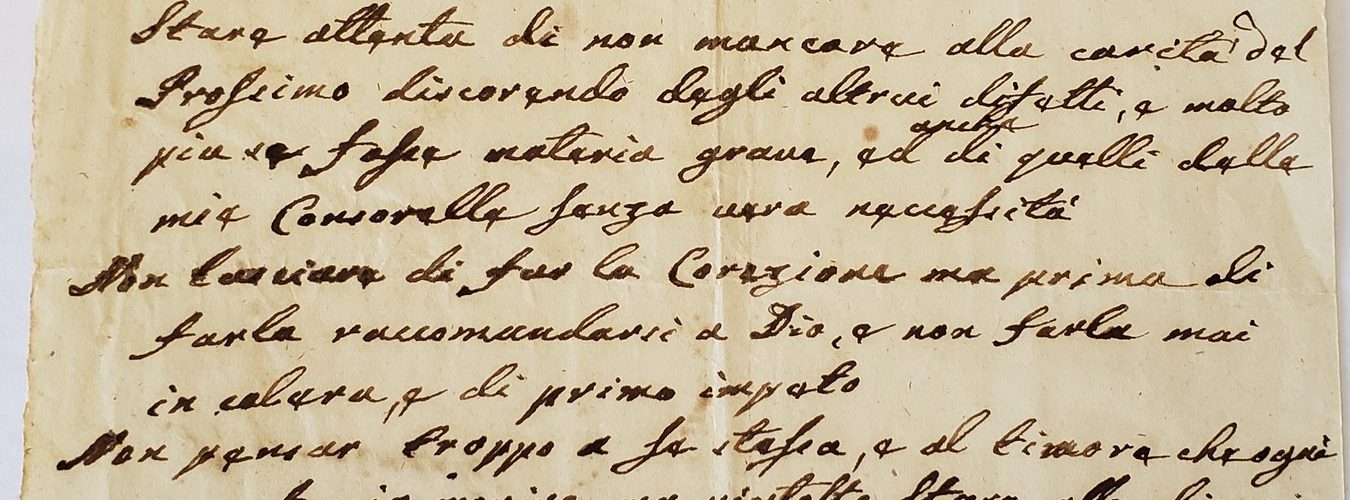 Stare attenta di non mancare alla carità del
Prossimo discorendo degli altrui difetti, e molto
piu se fosse materia grave, ed anche di quelli delle
mie Consorelle senza vera necessità
Non lasciare di far la Corezione ma prima di
farla raccomandarsi a Dio, e non farla mai
in colera, e di primo impeto
Non pensar troppo a se stessa, e al timore che ogni